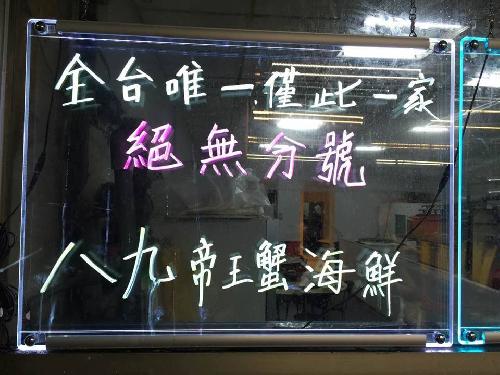 全台唯一僅此一家
絕無分號
八九帝王蟹海鮮